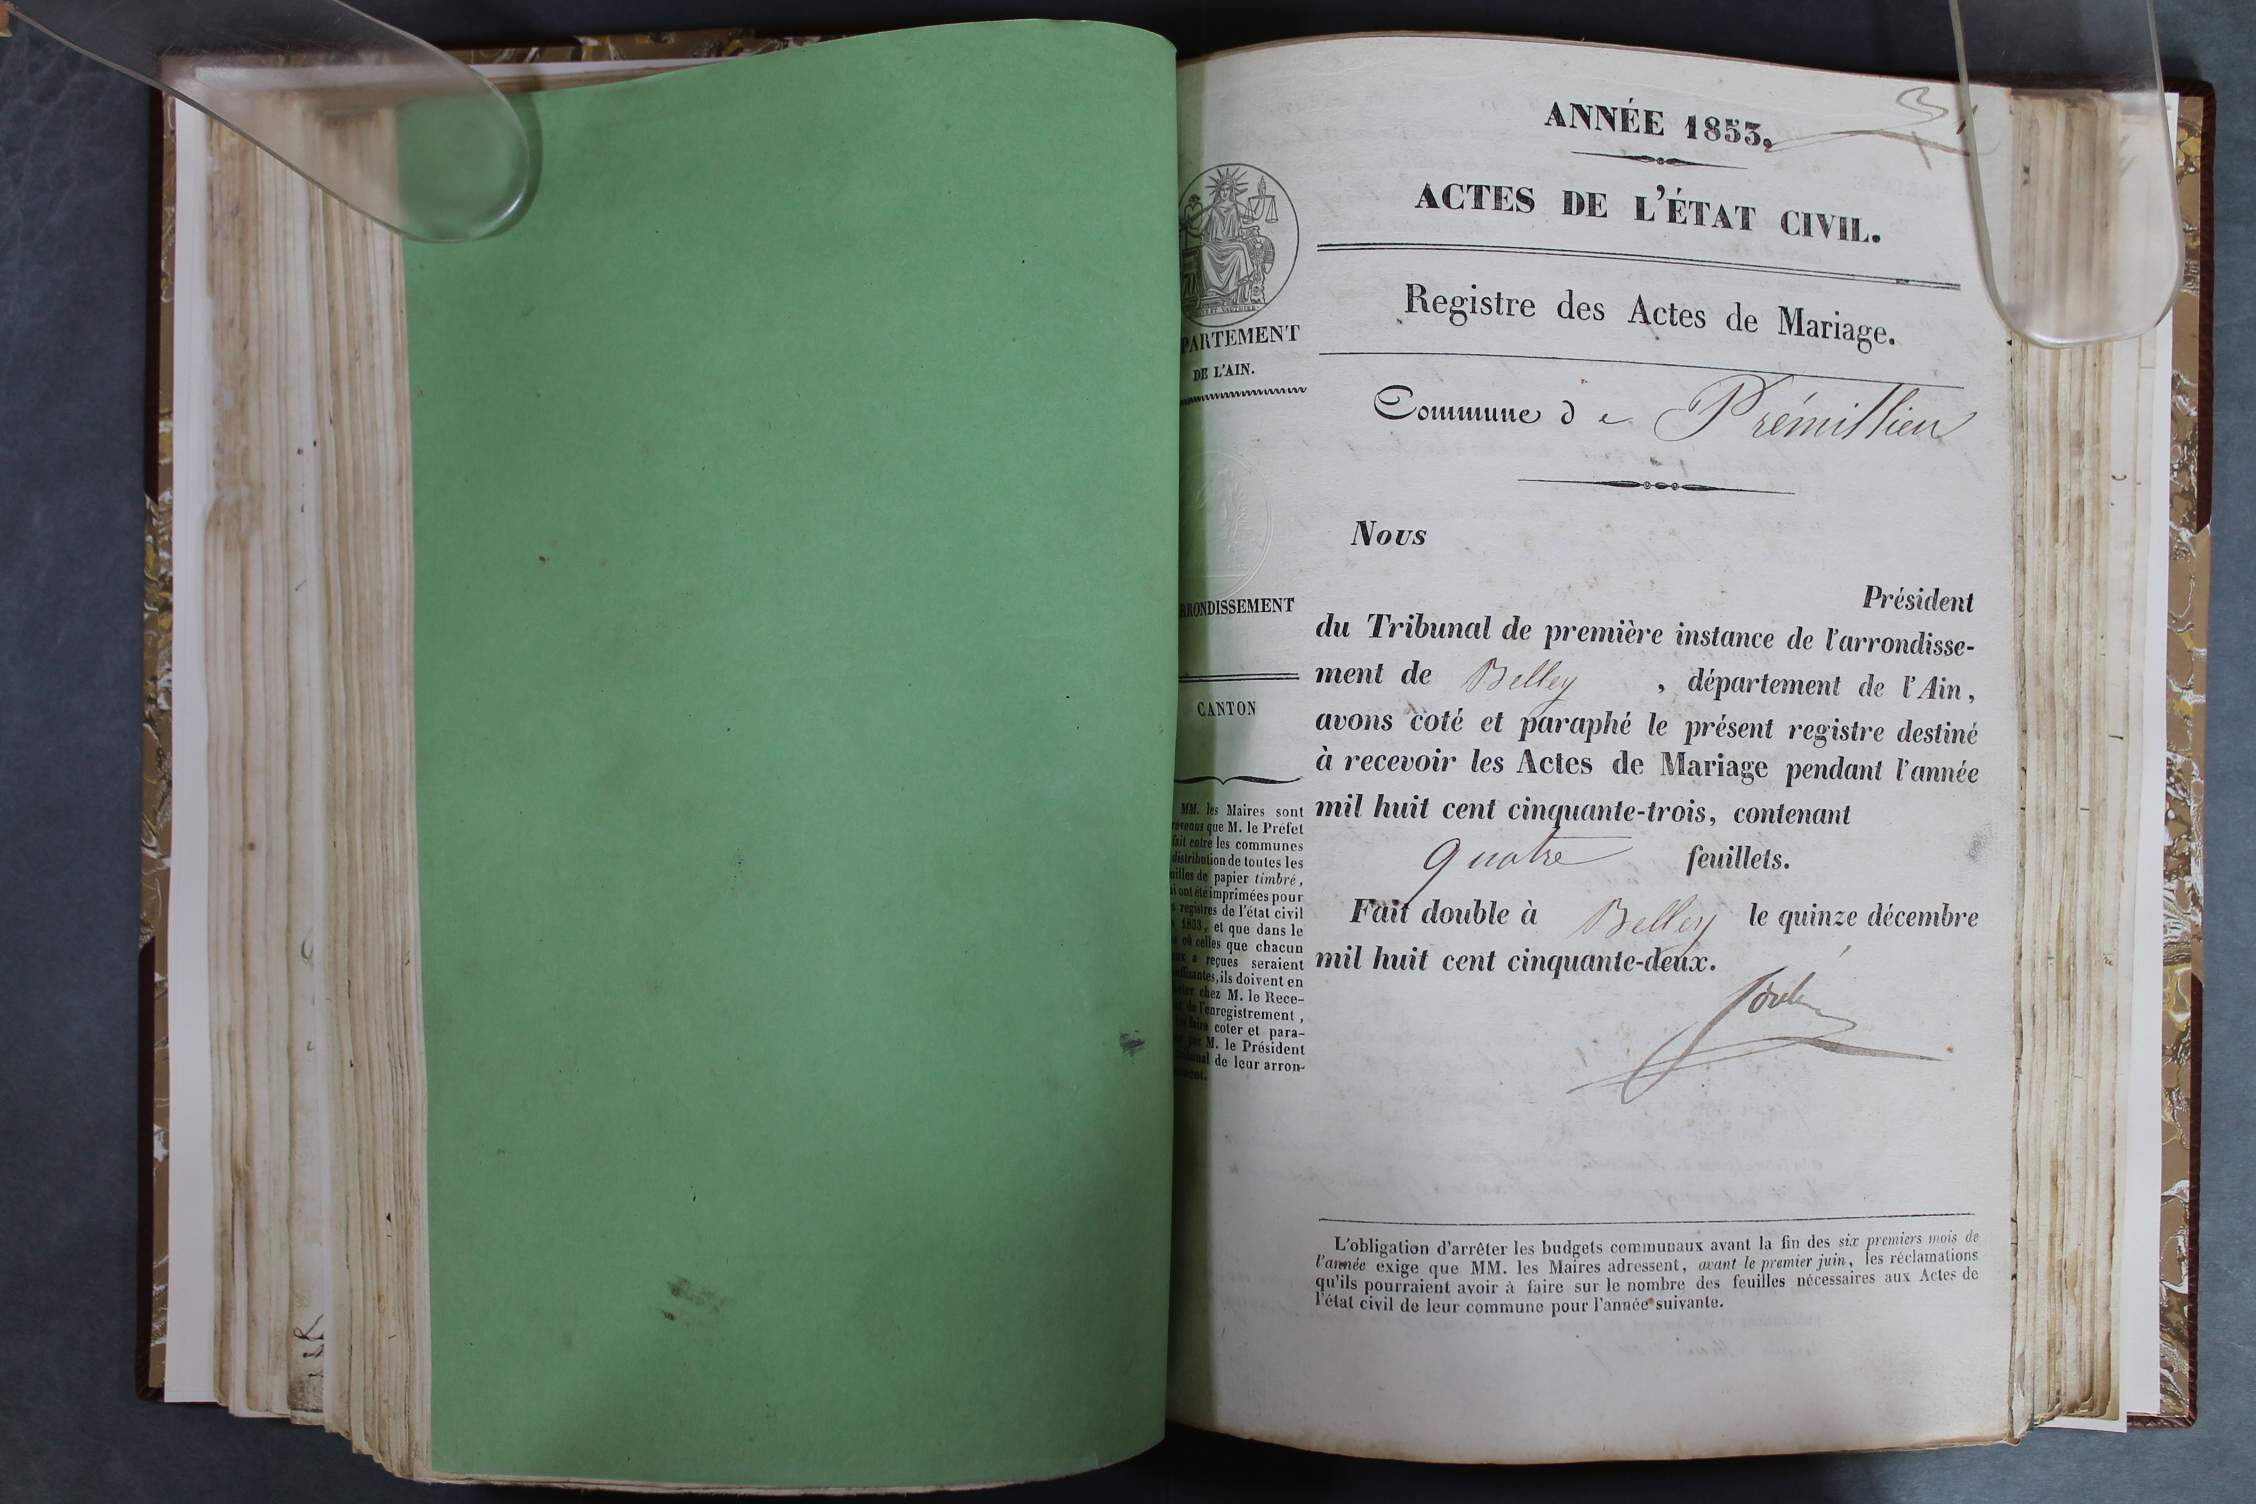 ANNÉE 1853,
ACTES DE L'ÉTAT CIVIL.
Registre des Actes de Mariage.
Commune de Prémillieu
PARTEMENT
DE L'AIN.
RRONDISSEMENT
CANTON
MM. les Maires sont
que M. le Préfet
fait entre les communes
distribution de toutes les
de papier timbré,
ont été imprimées pour
registres de l'état civil
1853, et que dans le
où celles que chacun
a reçues seraient
ils doivent en
chez M. le Rece-
de l'enregistrement,
faire coter et para-
par M. le Président
de leur arron-
Nous
Président
du Tribunal de première instance de l'arrondisse-
ment de Belley , département de l'Ain,
avons coté et paraphé le présent registre destiné
à recevoir les Actes de Mariage pendant l'année
mil huit cent cinquante-trois, contenant
quatre feuillets.
Fait double à Belley le quinze décembre
mil huit cent cinquante-deux.
L'obligation d'arrêter les budgets communaux avant la fin des six premiers mois de
l'année exige que MM. les Maires adressent, avant le premier juin, les réclamations
qu'ils pourraient avoir à faire sur le nombre des feuilles nécessaires aux Actes de
l'état civil de leur commune pour l'année suivante.